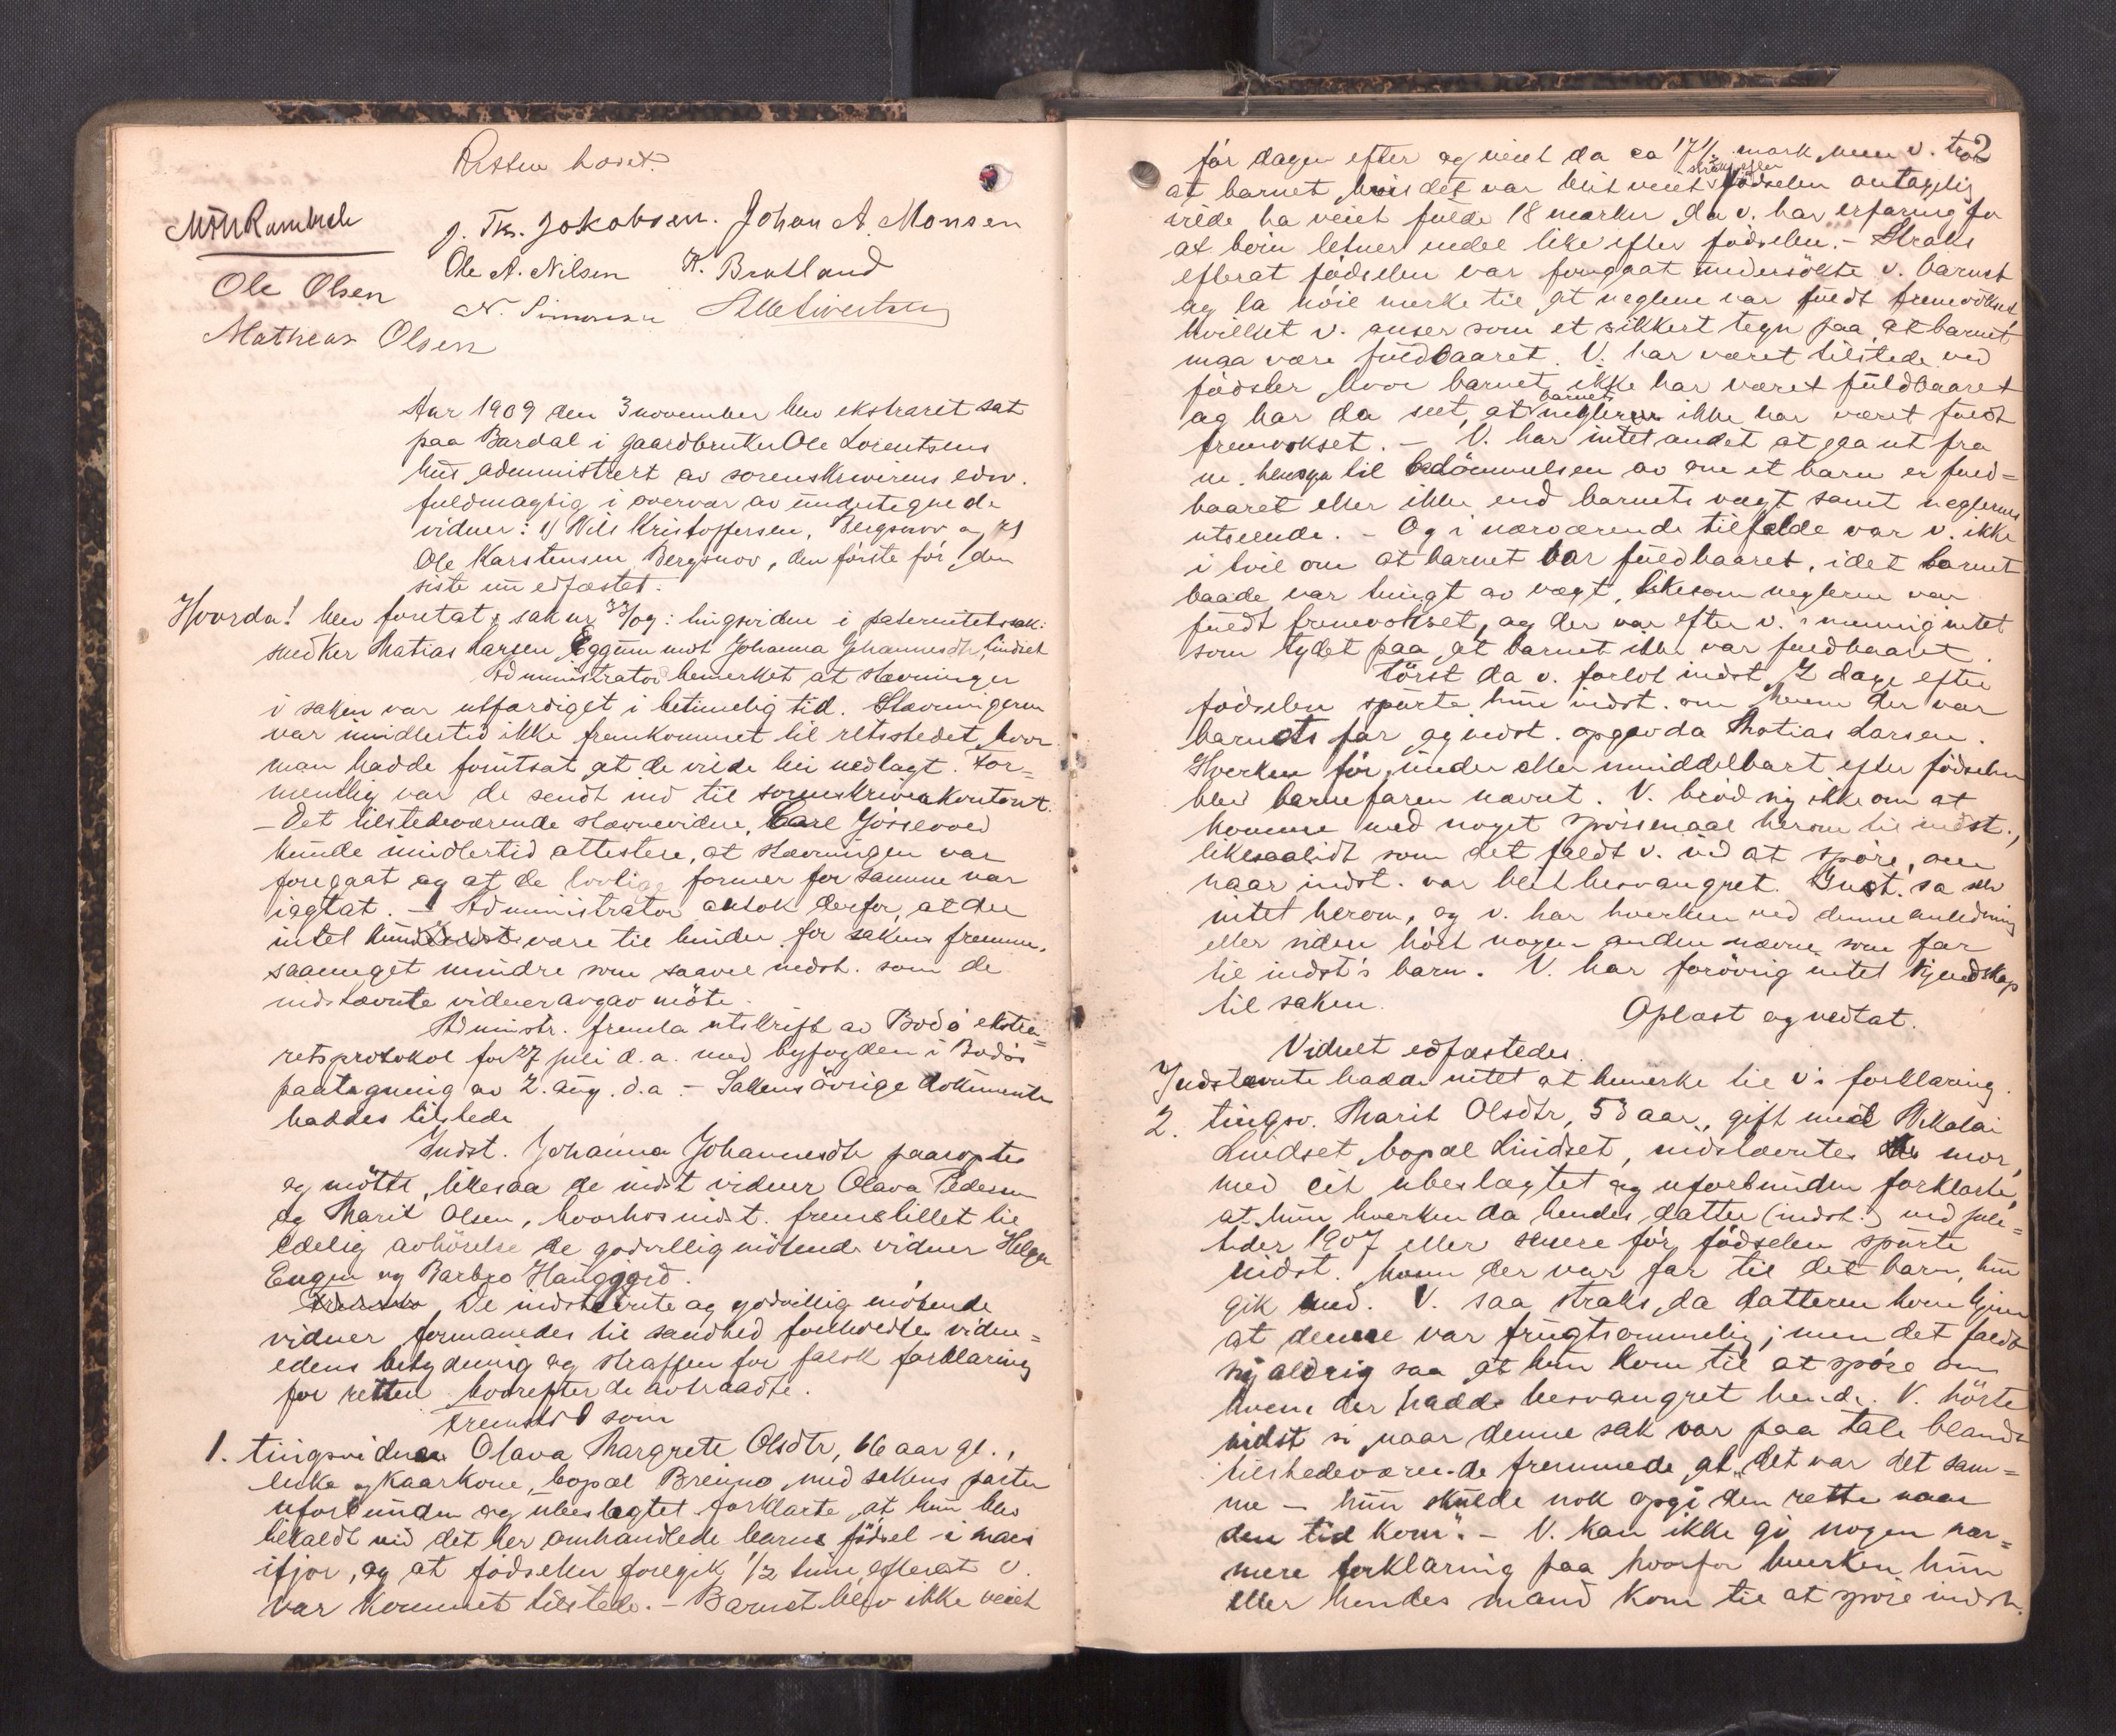 Retten hævet.
J. Tks. Jokobsen. Johan A. Monsen
Ole Olsen Ole A. Nilsen K. Bratland
N. Simonsen
Matheas Olsen
Aar 1909 den 3 november blev ekstraret sat
paa Bardal i gaardbruker Ole Lorentsens
hus administrert av sorenskriverens edsv.
fuldmægtig i overvær av undertegnede
vidner: 1) Nils Kristoffersen, Bergsnov og 2)
Ole Karstensen Bergsnov, den første før, den
siste nu edfæstet.
Hvorda! blev foretat: sak nr 33/09: tingsviden i paternitetssak:
snedker Matias Larsen Eggum mot Johanna Johannesdtr, Lindset
Administrator bemerket at stævninger
i saken var utfærdiget i betimelig tid. Stævningerne
var imidlertid ikke fremkommet til retsstedet, hvor
man hadde forutsat at de vilde bli nedlagt. For=
mentlig var de sendt ind til sorenskriverkontoret.
- Det tilstedeværende stævnevidne, Carl Jössevoed
kunde imidlertid attestere, at stævningen var
foregaat og at de lovlige former for samme var
iagtat. - Administrator antok derfor, at der
intet kunde være til hinder for sakens fremme,
saameget mindre som saavel indst. som de
indstævnte vidner avgav möte.
Administr. fremla utskrift av Bodø ekstra=
retsprotokol for 27 juli d.a. med byfogden i Bodøs
paategning av 2. aug. d.a. - Sakens övrige dokumenter
haddes tilstede
Indst. Johanna Johannesdtr paaroptes
og mötte, likesaa de indst vidner Olava Pedersen
og Marit Olsen, hvorhos indst. fremstillet til
edelig avhörelse de godvillig mötende vidner Helga
Eugen og Barbro Hauggjerd.
De indstævnte og godvillig mötende
vidner formanedes til sandhed foreholdtes vidne=
edens betydning og straffen for falsk forklaring
for retten hvorefter de avtraadte.
Fremstod som
1. tingsvidne Olava Margrete Olsdtr, 66 aar gl.,
enke og kaarkone, bopæl Breimo, med sakens parter
uforbunden og ubeslægtet forklarte, at hun blev
tilkaldt ved det her omhandlede barns födsel i mars
ifjor, og at födselen foregik 1/2 time efterat v.
var kommet tilstede. - Barnet blev ikke veiet
2
før dagen efter og veiet da ca 17 1/2 mark, men v. tror
at barnet, hvis det var blit veiet straks efter födselen antagelig
vilde ha veiet fulde 18 marker da v. har erfaring for
at barn letner endel like efter födselen. - Straks
efterat födselen var foregaat undersökte v. barnet
og la nöie merke til, at neglene var fuldt fremvokset,
hvilket v. anser som et sikkert tegn paa, at barnet
maa være fuldbaaret. V. har været tilstede ved
födsler hvor barnet ikke har været fuldbaaret
og har da set, at barnets neglerne ikke har været fuldt
fremvokset. - V. har intet andet at gaa ut fra
m. hensyn til bedömmelsen av om et barn er fuld=
baaret eller ikke end barnets vægt samt neglenes
utseende. - Og i nærværende tilfælde var v. ikke
i tvil om at barnet var fuldbaaret, idet barnet
baade var tungt av vægt, likesom neglerne var
fuldt fremvokset, og der var efter v.'s mening intet
som tydet paa, at barnet ikke var fuldbaaret.
Först da v. forlot indst. 2 dage efter
födselen spurte hun indst. om hvem der var
barnets far og indst. opgav da Matias Larsen.
Hverken för, under eller umiddelbart efter födselen
blev barnefaren nævnt. V. bröd sig ikke om at
komme med noget spörsmaal herom til indst.,
likesaalidt som det faldt v. ind at spörre, om
naar indst. var blit besvangret. Indst. sa selv
intet herom, og v. har hverken ved denne anledning
eller siden hört nogen anden nævne som far
til indst's barn. V. har forövrig intet kjendskap
til saken.
Oplæst og vedtat.
Vidnet edfæstedes.
Indstævnte hadde intet at bemerke til v's forklaring.
2. tingsv. Marit Olsdtr, 53 aar, gift med Nikolai
Lindset, bopæl Lindset, indstævntes mor,
med cit. ubeslægtet og uforbunden forklarte,
at hun hverken da hendes datter (indst.) ved jule=
tider 1907 eller senere för födselen spurte
indst. hvem der var far til det barn, hun
gik med. V. saa straks, da datteren kom hjem
at denne var frugtsommelig; men det faldt
sig aldrig saa at hun kom til at spöre om
hvem der hadde besvangret hende. V. hörte
indst si, naar denne sak var paa tale blandt
tilstedeværende fremmede, at "det var det sam=
me - hun skulde nok opgi den rette naar
den tid kom". - V. kan ikke gi nogen nær=
mere forklaring paa hvorfor hverken hun
eller hendes mand kom til at spöre indst.